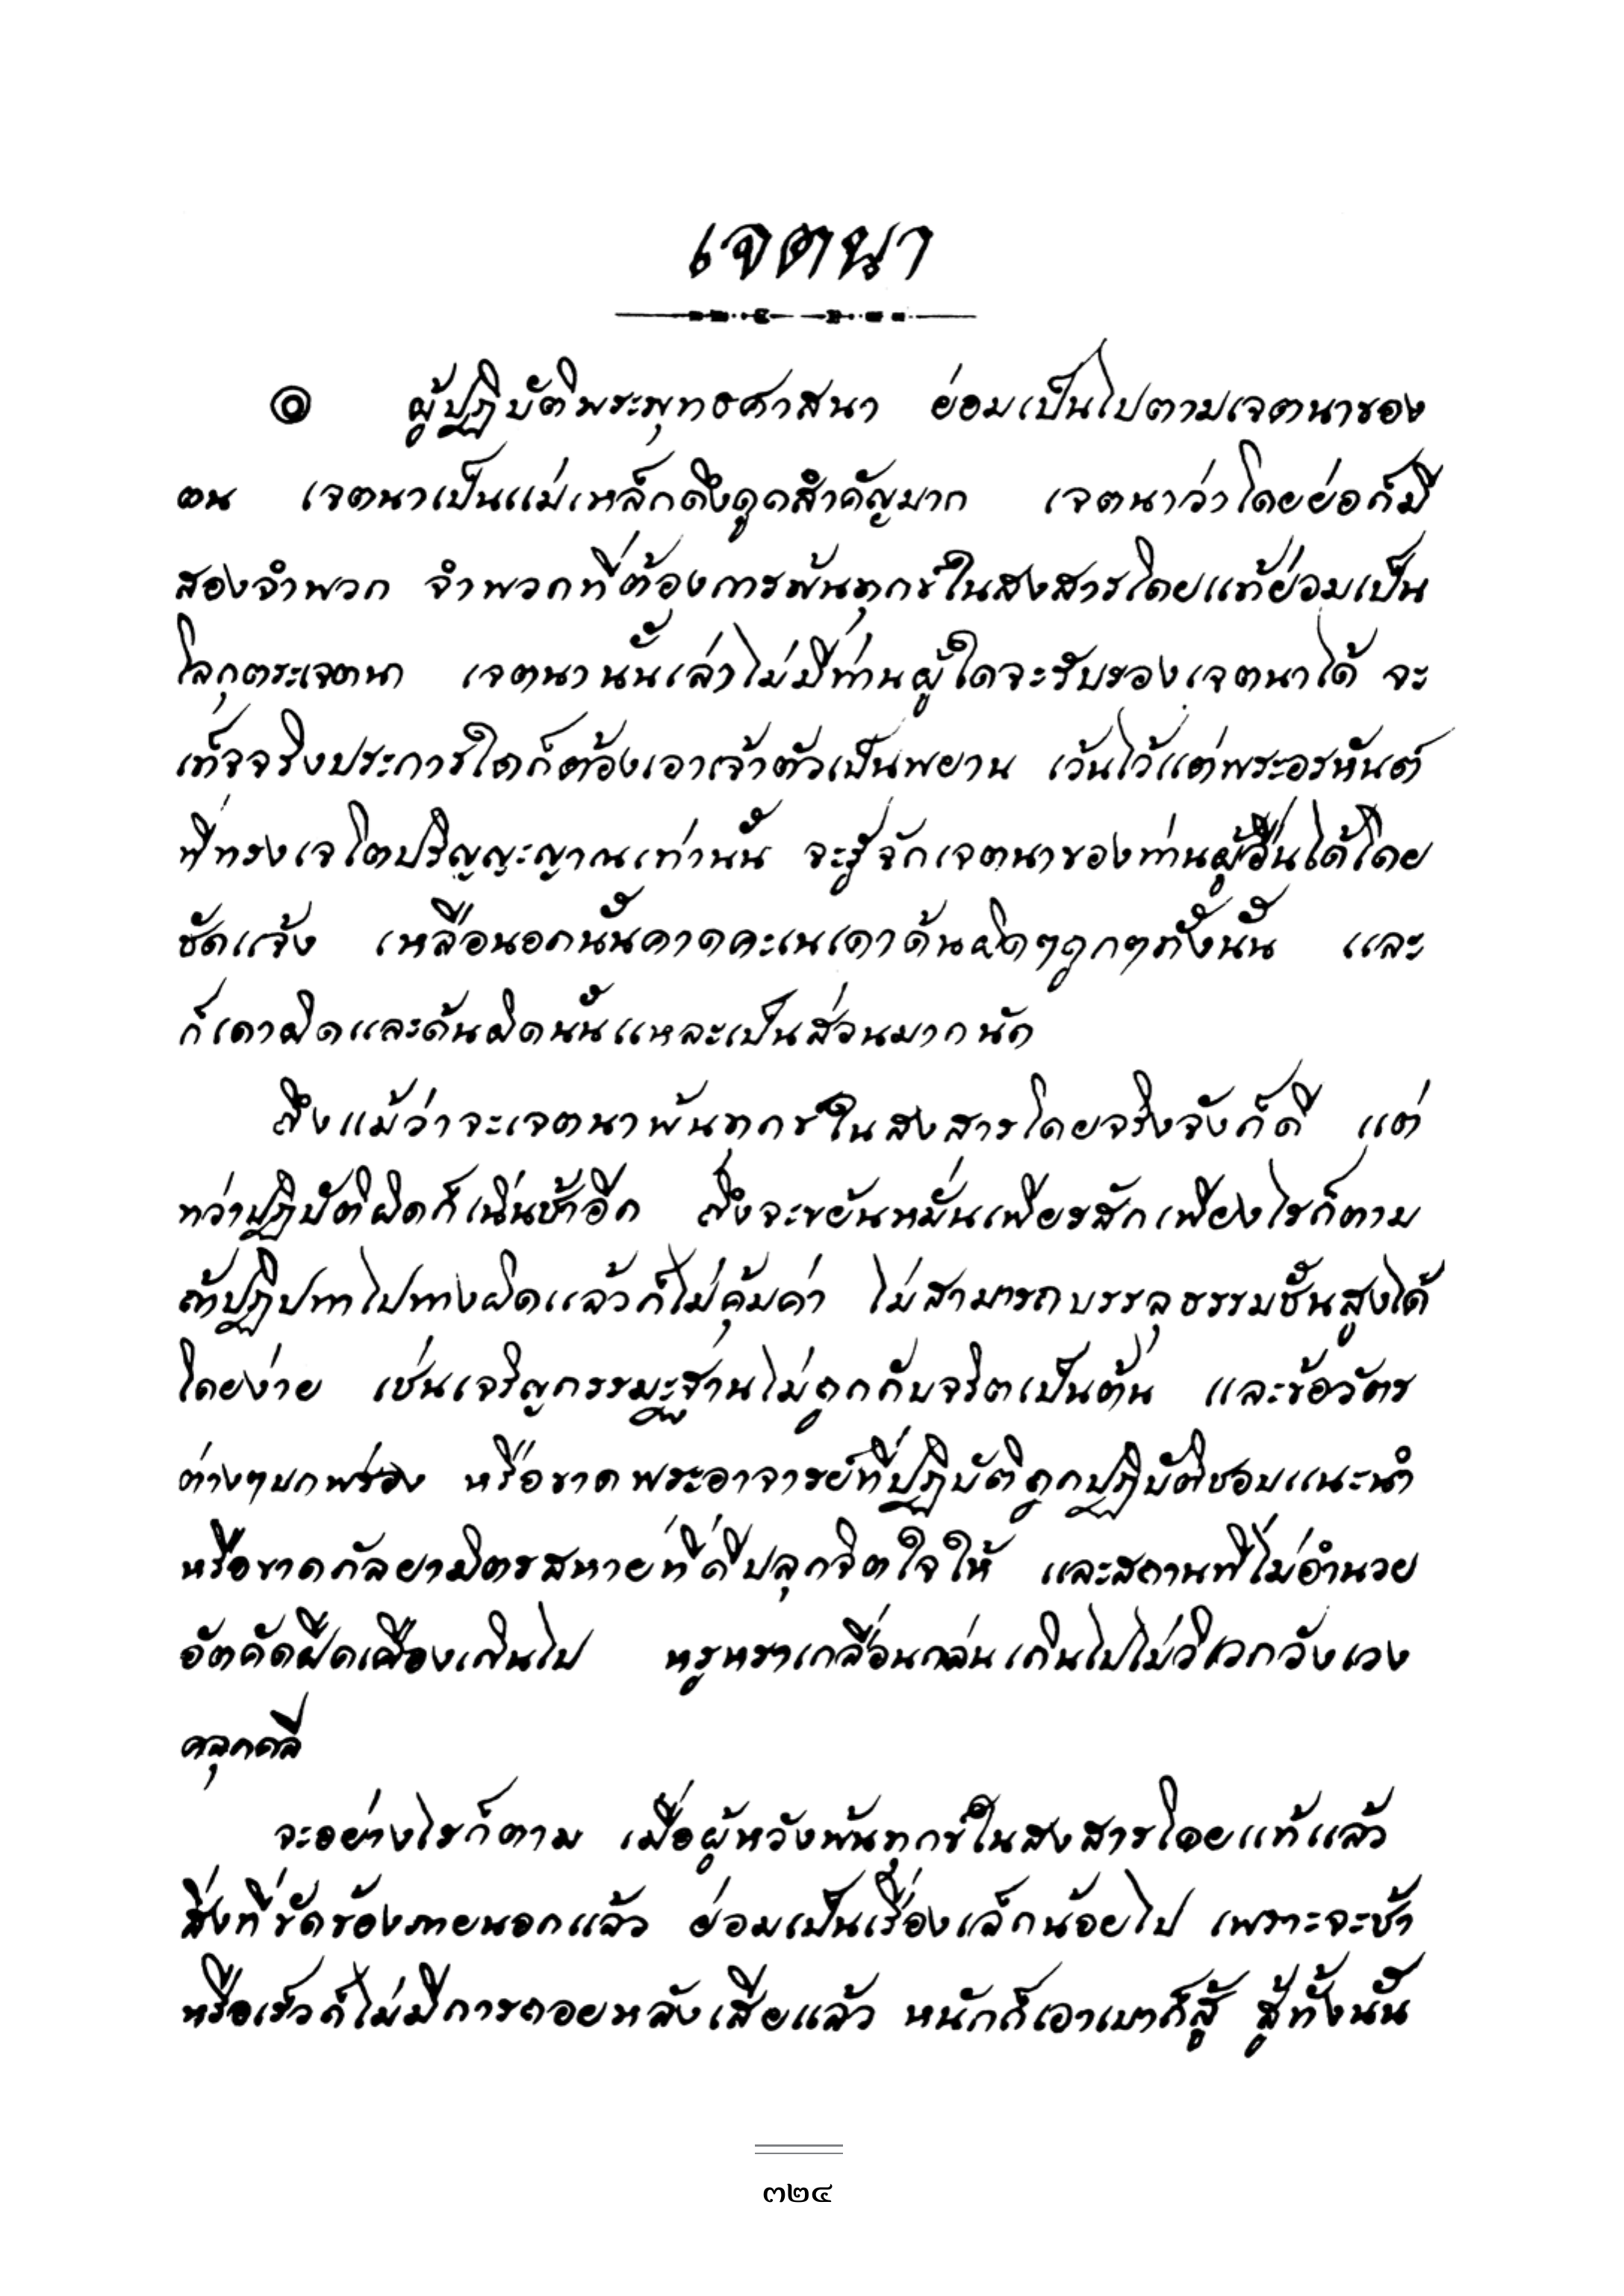 เจตนา
๏ ผู้ปฏิบัติพระพุทธศาสนา ย่อมเป็นไปตามเจตนาของ
ตน เจตนาเป็นแม่เหล็กดึงดูดสำคัญมาก เจตนาว่าโดยย่อก็มี
สองจำพวก จำพวกที่ต้องการพ้นทุกข์ในสงสารโดยแท้ย่อมเป็น
โลกุตระเจตนา เจตนานั้นเล่าไม่มีท่านผู้ใดจะรับรองเจตนาได้ จะ
เท็จจริงประการใดก็ต้องเอาเจ้าตัวเป็นพยาน เว้นไว้แต่พระอรหันต์
ที่ทรงเจโตปริญญะญาณเท่านั้น จะรู้จักเจตนาของท่านผู้อื่นได้โดย
ชัดแจ้ง เหลือนอกนั้นคาดคะเนเดาด้นผิดๆถูกๆทั้งนั้น และ
ก็เดาผิดและด้นผิดนั้นแหละเป็นส่วนมากนัก
ถึงแม้ว่าจะเจตนาพ้นทุกข์ในสงสารโดยจริงจังก็ดี แต่
ทว่าปฏิบัติผิดก็เนิ่นช้าอีก ถึงจะขยันหมั่นเพียรสักเพียงไรก็ตาม
ถ้าปฏิปทาไปทางผิดแล้วก็ไม่คุ้มค่า ไม่สามารถบรรลุธรรมชั้นสูงได้
โดยง่าย เช่นเจริญกรรมะฐานไม่ถูกกับจริตเป็นต้น และข้อวัตร
ต่างๆบกพร่อง หรือขาดพระอาจารย์ที่ปฏิบัติถูกปฏิบัติชอบแนะนำ
หรือขาดกัลยามิตรสหายที่ดีปลุกจิตใจให้ และสถานที่ไม่อำนวย
อัตคัดฝืดเคืองเกินไป หรูหราเกลื่อนกล่นเกินไปไม่วิเวกวังเวง
คลุกคลี
จะอย่างไรก็ตาม เมื่อผู้หวังพ้นทุกข์ในสงสารโดยแท้แล้ว
สิ่งที่ขัดข้องภายนอกแล้ว ย่อมเป็นเรื่องเล็กน้อยไป เพราะจะช้า
หรือเร็วก็ไม่มีการถอยหลังเสียแล้ว หนักก็เอาเบาก็สู้ สู้ทั้งนั้น
๓๒๔